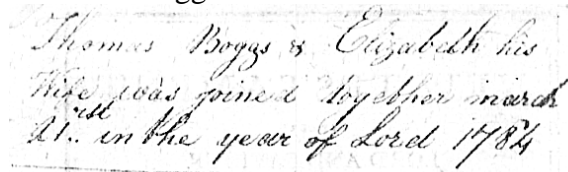 Thomas Boggs & Elizabeth his
Wife was joined together march
21.rst in the year of Lord 1784